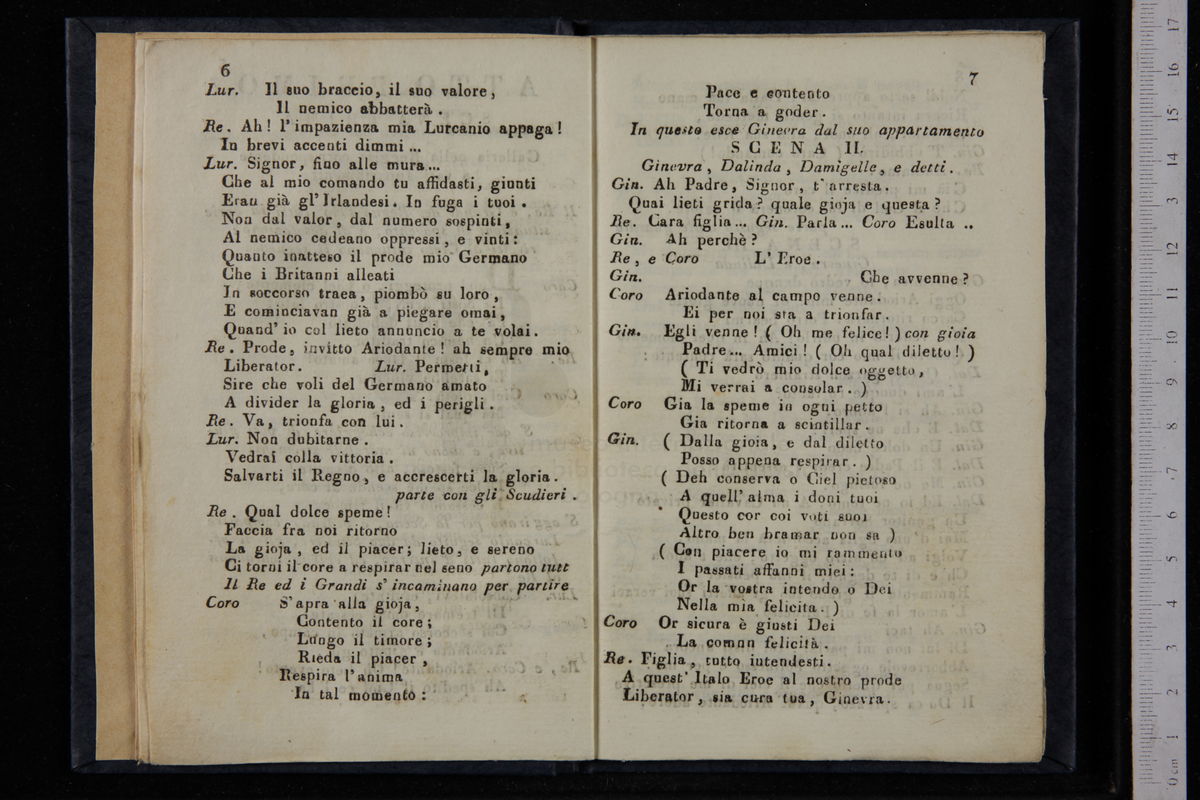 6
Lur. Il suo braccio, il suo valore,
Il nemico abbatterà.
Re. Ah! l'impazienza mia Lurcanio appaga!
In brevi accenti dimmi ...
Lur. Signor, fino alle mura...
Che al mio comando tu affidasti, giunti
Eran già gl'Irlandesi. In fuga i tuoi.
Non dal valor, dal numero sospinti,
Al nemico cedeano oppressi, e vinti:
Quanto inatteso il prode mio Germano
Che i Britanni alleati
In soccorso traea, piombò su loro,
E cominciavan già a piegare omai,
Quand' io col lieto annuncio a te volai.
Re. Prode, invitto Ariodante! ah sempre mio
Liberator. Lur. Permetti,
Sire che voli del Germano amato
A divider la gloria, ed i perigli.
Re. Va, trionfa con lui.
Lur. Non dubitarne.
Vedrai colla vittoria.
Salvarti il Regno, e accrescerti la gloria.
parte con gli Scudieri.
Re. Qual dolce speme!
Faccia fra noi ritorno
La gioja, ed il piacer; lieto, e sereno
Ci torni il core a respirar nel seno partono tutt
Il Re ed i Grandi s' incaminano per partire
Coro S'apra alla gioja,
Contento il core;
Lungo il timore;
Rieda il piacer,
Respira l'anima
In tal momento:
7
Pace e contento
Torna a goder.
In questo esce Ginevra dal suo appartamento
SCENA II.
Ginevra, Dalinda, Damigelle, e detti.
Gin. Ah Padre, Signor, t'arresta.
Quai lieti grida? quale gioja e questa?
Re. Cara figlia... Gin. Parla... Coro Esulta ..
Gin. Ah perchè?
Re, e Coro L' Eroe.
Gin. Che avvenne?
Coro Ariodante al campo venne.
Ei per noi sta a trionfar.
Gin. Egli venne! ( Oh me felice! ) con gioia
Padre... Amici! ( Oh qual diletto! )
( Ti vedrò mio dolce oggetto,
Mi verrai a consolar. )
Coro Gia la speme in ogni petto
Gia ritorna a scintillar.
Gin. ( Dalla gioia, e dal diletto
Posso appena respirar. )
( Deh conserva o Ciel pietoso
A quell' alma i doni tuoi
Questo cor coi voti suoi
Altro ben bramar non sa )
( Con piacere io mi rammento
I passati affanni miei:
Or la vostra intendo o Dei
Nella mia felicita. )
Coro Or sicura è giusti Dei
La comun felicità.
Re. Figlia, tutto intendesti.
A quest' Italo Eroe al nostro prode
Liberator, sia cura tua, Ginevra.
0 cm 1 2 3 4 5 6 7 8 9 10 11 12 13 14 15 16 17